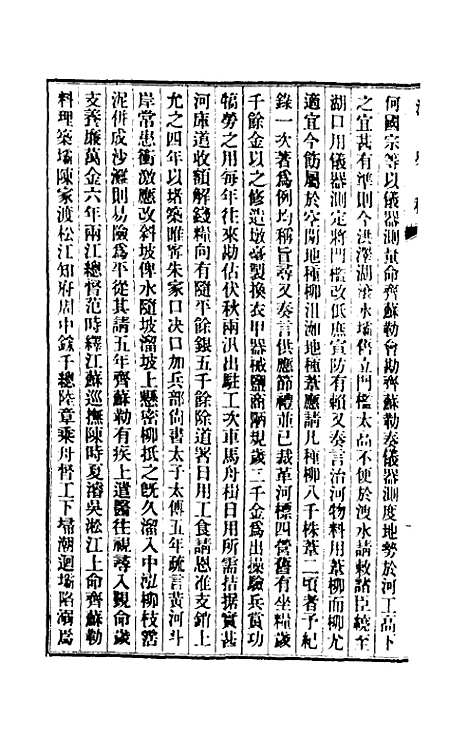 何國宗等以儀器測量命齊蘇勒會勘齊蘇勒奏儀器測度地勢於河工高下
之宜甚有準則今洪澤湖滾水壩舊立門檻太高不便於洩水請敕諸臣繞至
湖口用儀器測定將門檻改低庶宣防有賴又奏言治河物料用葦柳而柳尤
適宜今飭屬於空閒地種柳沮洳地種葦應請凡種柳八千株葦二頃者予紀
錄一次著爲例均稱旨尋又奏言供應節禮並已裁革河標四營舊有坐糧歲
千餘金以之修造墩臺製換衣甲器械鹽商陋規歲三千金爲出操驗兵賞功
犒勞之用每年往來勘估伏秋兩汛出駐工次車馬舟楫日用所需拮据實甚
河庫道收額解錢糧向有隨平餘銀五千餘除道署日用工食請恩准支銷上
允之四年以堵築睢寧朱家口決口加兵部尚書太子太傅五年疏言黃河斗
岸常患衝激應改斜坡俾水隨坡溜坡上懸密柳抵之旣久溜入中泓柳枝霑
泥併成沙灘則易險爲平從其請五年齊蘇勒有疾上遣醫往視尋入覲命歲
支養廉萬金六年兩江總督范時繹江蘇巡撫陳時夏濬吳淞江上命齊蘇勒
料理築壩陳家渡松江知府周中鋐千總陸章乘舟督工下埽潮迴壩陷溺焉